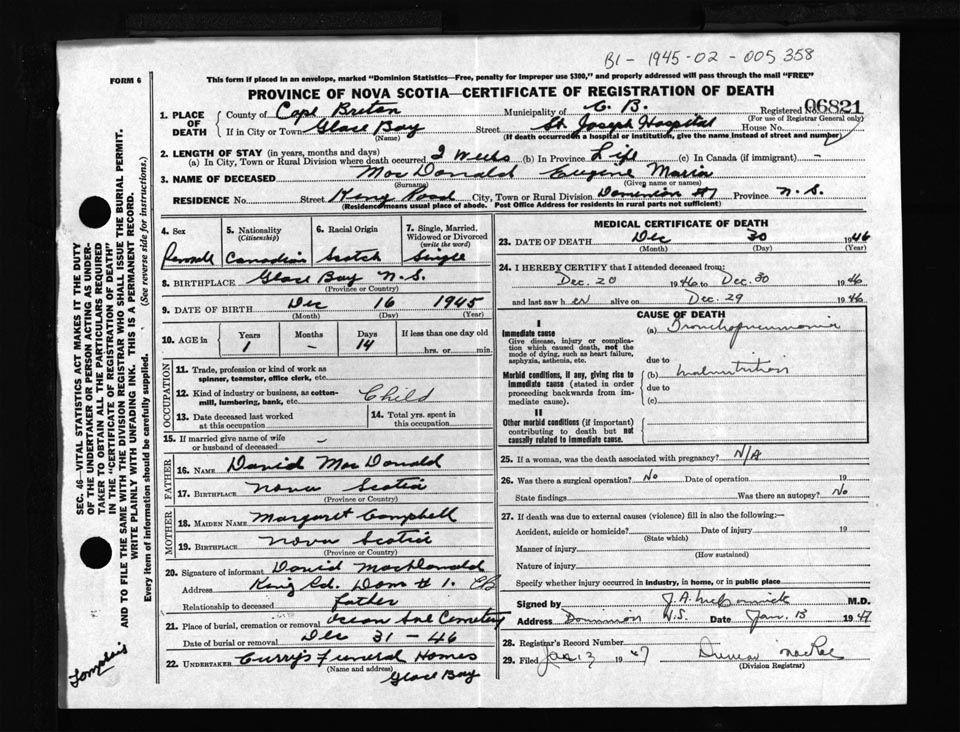 B1 - 1945 - 02 - 005 358
FORM 6
This form if placed in an envelope, marked "Dominion Statistics—Free, penalty for improper use $300," and properly addressed will pass through the mail "FREE"
PROVINCE OF NOVA SCOTIA—CERTIFICATE OF REGISTRATION OF DEATH
1. PLACE OF DEATH County of Cape Breton Municipality of C. B. Registered No. 06821
(For use of Registrar General only)
If in City or Town Glace Bay Street St Joseph Hospital House No.
(Name) (If death occurred in a hospital or institution, give the name instead of street and number)
2. LENGTH OF STAY (in years, months and days)
(a) In City, Town or Rural Division where death occurred 2 Weeks (b) In Province Life (c) In Canada (if immigrant) -
3. NAME OF DECEASED MacDonald Eugene Maria
(Surname) (Given name or names)
RESIDENCE No. Street King Road City, Town or Rural Division Dominion #1 Province N. S.
(Residence means usual place of abode. Post Office Address for residents in rural parts not sufficient)
4. Sex 5. Nationality (Citizenship) 6. Racial Origin 7. Single, Married, Widowed or Divorced (write the word)
Female Canadian Scotch Single
8. BIRTHPLACE Glace Bay N.S.
(Province or Country)
9. DATE OF BIRTH Dec 16 1945
(Month) (Day) (Year)
10. AGE in Years Months Days If less than one day old
1 - 14 hrs. or min.
OCCUPATION
11. Trade, profession or kind of work as spinner, teamster, office clerk, etc.
12. Kind of industry or business, as cotton-mill, lumbering, bank, etc. Child
13. Date deceased last worked at this occupation 14. Total yrs. spent in this occupation
15. If married give name of wife or husband of deceased -
FATHER
16. NAME David MacDonald
17. BIRTHPLACE Nova Scotia
(Province or Country)
MOTHER
18. MAIDEN NAME Margaret Campbell
19. BIRTHPLACE Nova Scotia
(Province or Country)
20. Signature of informant David MacDonald
Address King Rd. Dom #1. CB
Relationship to deceased father
21. Place of burial, cremation or removal Ocean Ave Cemetery
Date of burial or removal Dec 31 - 46
22. UNDERTAKER Curry's Funeral Homes
(Name and address)
Glace Bay
MEDICAL CERTIFICATE OF DEATH
23. DATE OF DEATH Dec 30 1946
(Month) (Day) (Year)
24. I HEREBY CERTIFY that I attended deceased from:
Dec. 20 1946 to Dec. 30 1946
and last saw her alive on Dec. 29 1946
CAUSE OF DEATH
I
Immediate cause (a) Bronchopneumonia
Give disease, injury or complication which caused death, not the mode of dying, such as heart failure, asphyxia, asthenia, etc.
due to
Morbid conditions, if any, giving rise to immediate cause (stated in order proceeding backwards from immediate cause). (b) Malnutrition
due to
(c)
II
Other morbid conditions (if important) contributing to death but not causally related to immediate cause.
25. If a woman, was the death associated with pregnancy? N/A
26. Was there a surgical operation? No Date of operation 19
State findings Was there an autopsy? No
27. If death was due to external causes (violence) fill in also the following:—
Accident, suicide or homicide? Date of injury 19
(State which)
Manner of injury
(How sustained)
Nature of injury
Specify whether injury occurred in industry, in home, or in public place
Signed by J. A. McCormick M.D.
Address Dominion N.S. Date Jan. 13 1947
28. Registrar's Record Number
29. Filed Jan 13 1947 Duncan MacRae
(Division Registrar)
SEC. 46—VITAL STATISTICS ACT MAKES IT THE DUTY
OF THE UNDERTAKER OR PERSON ACTING AS UNDER-
TAKER TO OBTAIN ALL THE PARTICULARS REQUIRED
IN THE "CERTIFICATE OF REGISTRATION OF DEATH"
AND TO FILE THE SAME WITH THE DIVISION REGISTRAR WHO SHALL ISSUE THE BURIAL PERMIT.
WRITE PLAINLY WITH UNFADING INK. THIS IS A PERMANENT RECORD.
Every item of information should be carefully supplied. (See reverse side for instructions.)